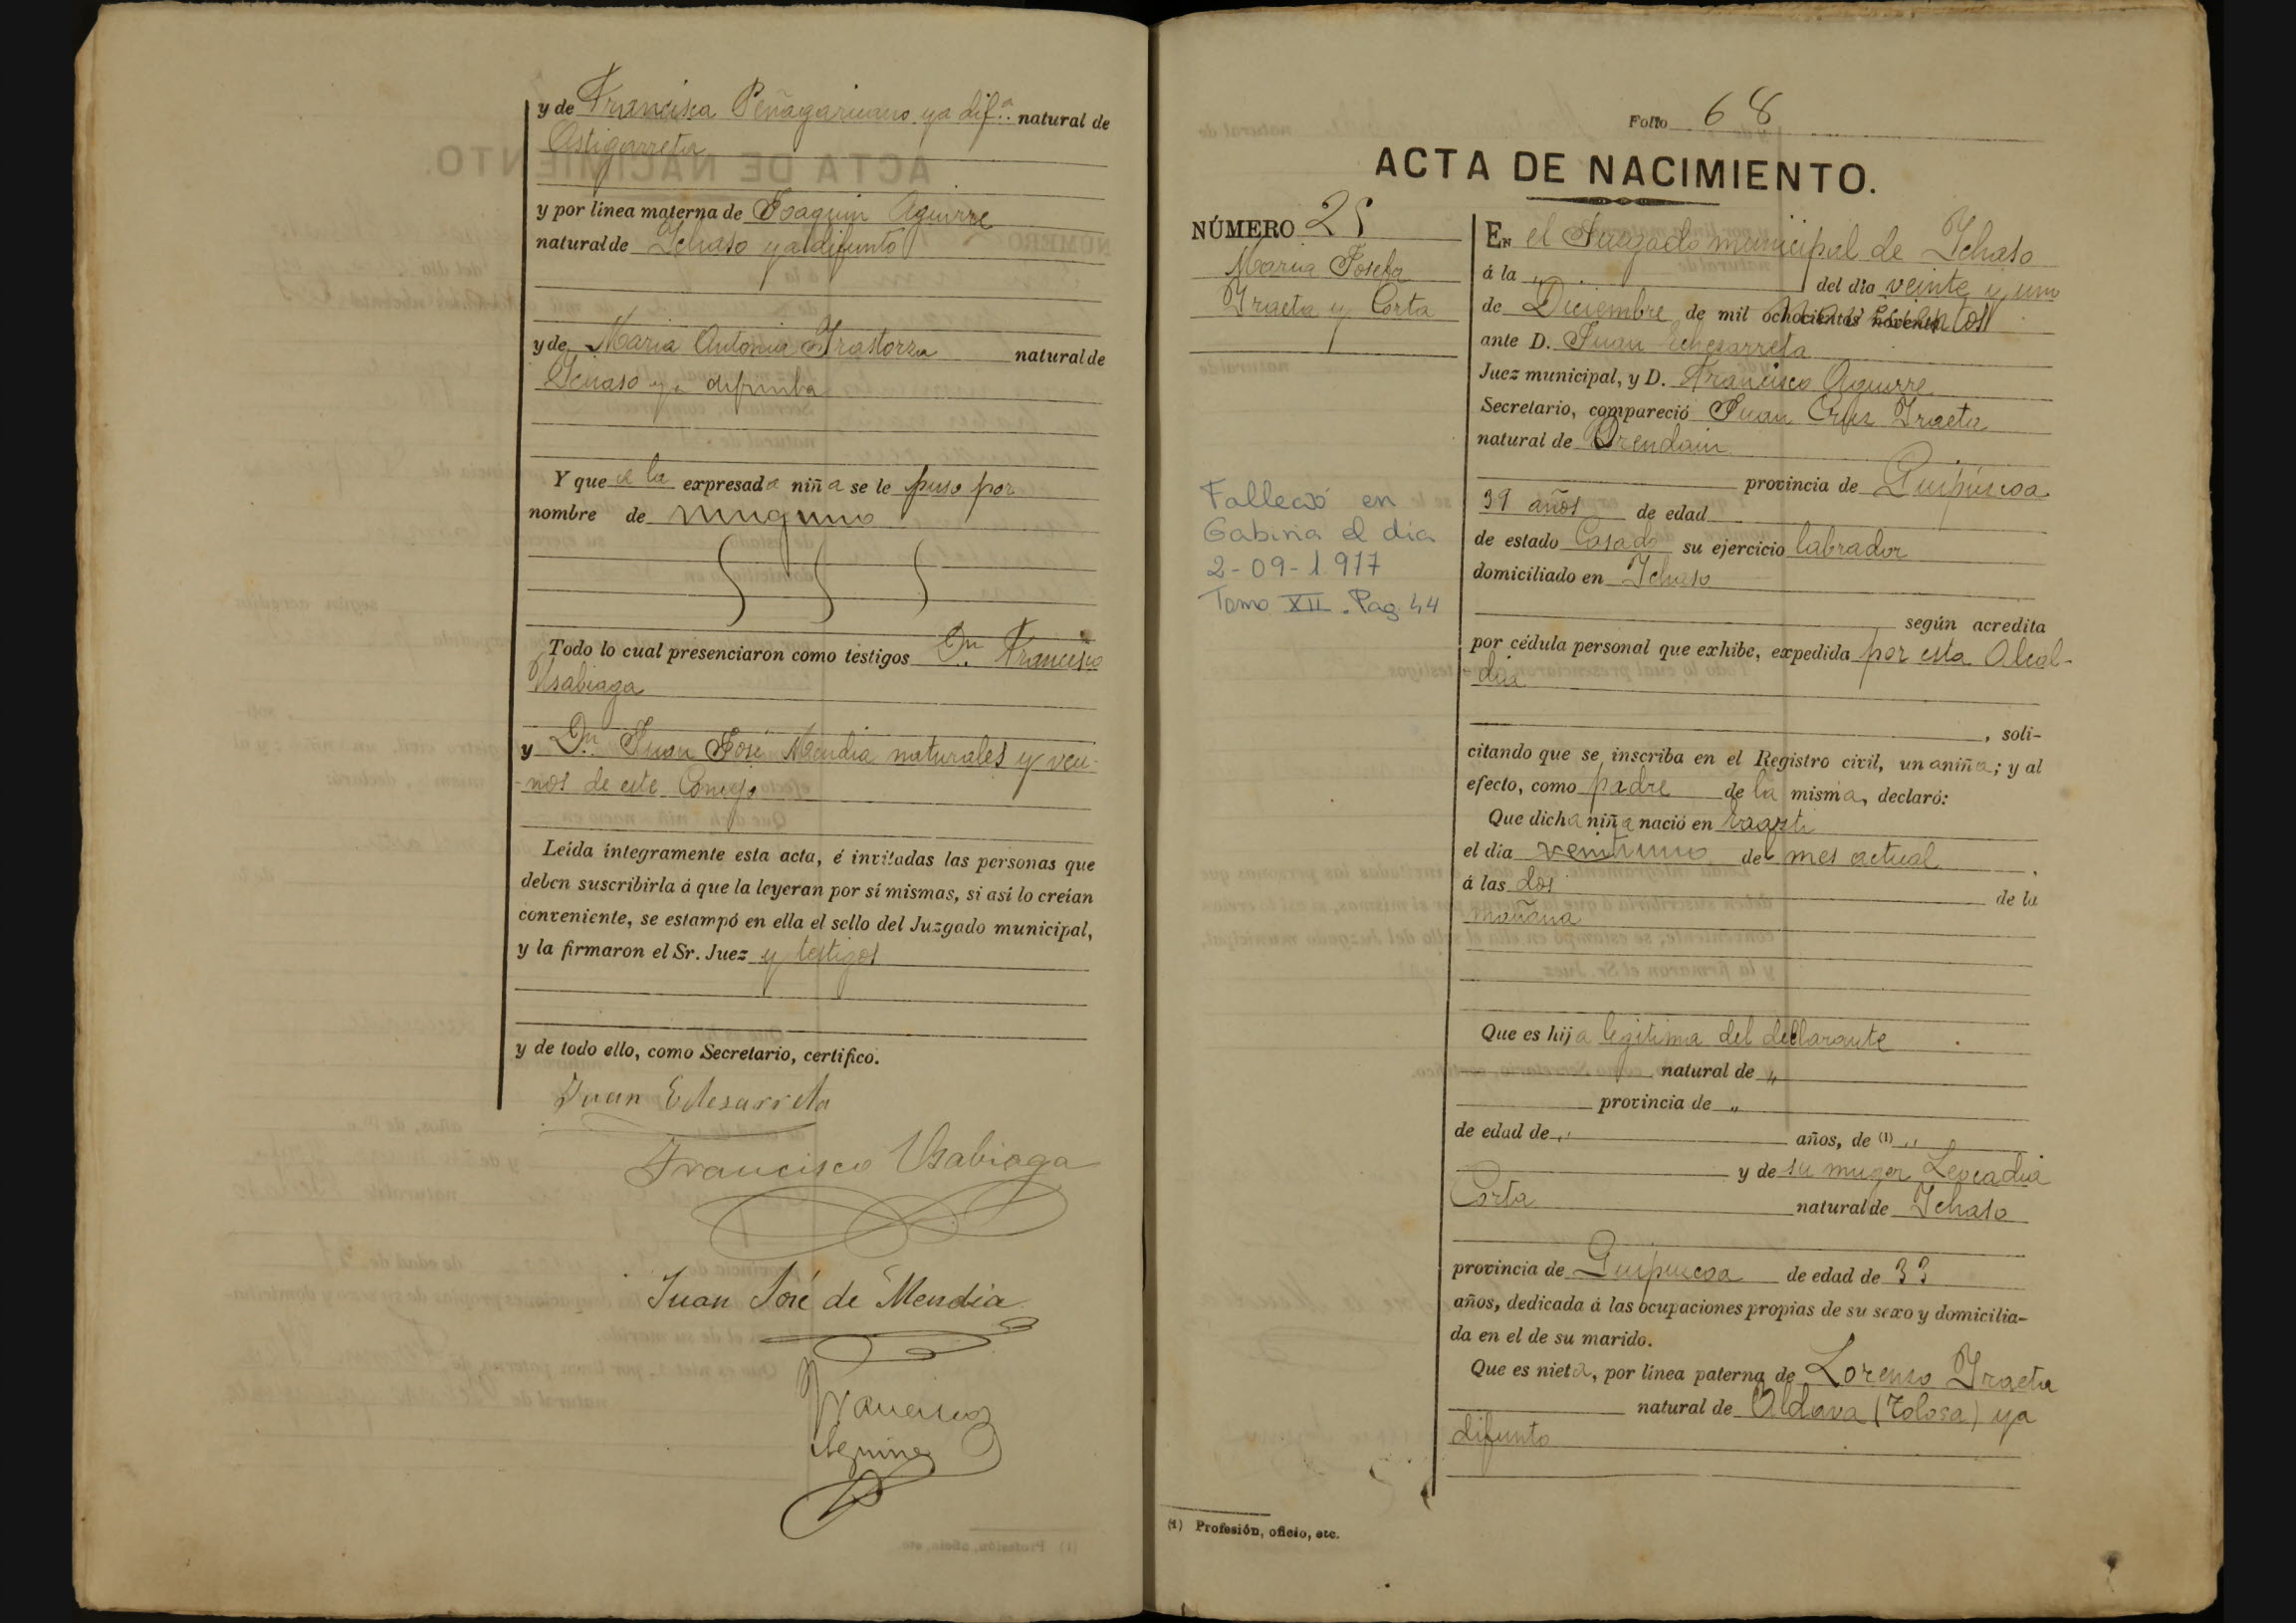 y de Francisca Peñagaricano ya dif.ª natural de
Astigarreta
y por línea materna de Joaquin Aguirre
natural de Ichaso ya difunto
y de Maria Antonia Irastorza natural de
Ichaso ya difunta
Y que á la expresada niña se le puso por
nombre de ninguno
Todo lo cual presenciaron como testigos Dn. Francisco
Usabiaga
y Dn. Juan José Mendia naturales y veci-
-nos de este Concejo
Leída íntegramente esta acta, é invitadas las personas que
deben suscribirla á que la leyeran por sí mismas, si así lo creían
conveniente, se estampó en ella el sello del Juzgado municipal,
y la firmaron el Sr. Juez y testigos
y de todo ello, como Secretario, certifico.
Juan Echesarreta
Francisco Usabiaga
Juan José de Mendia
Francisco
Aguirre
Folio 68
ACTA DE NACIMIENTO.
NÚMERO 25
Maria Josefa
Iraeta y Corta
Falleció en
Gabiria el día
2-09-1.977
Tomo XII. Pag. 44
EN el Juzgado municipal de Ichaso
á la „ del día veinte y uno
de Diciembre de mil novecientos
ante D. Juan Echesarreta
Juez municipal, y D. Francisco Aguirre
Secretario, compareció Juan Cruz Iraeta
natural de Orendain
provincia de Guipúscoa
39 años de edad
de estado Casado su ejercicio labrador
domiciliado en Ichaso
según acredita
por cédula personal que exhibe, expedida por esta Alcal-
-dia
, soli-
citando que se inscriba en el Registro civil, una niña; y al
efecto, como padre de la misma, declaró:
Que dicha niña nació en
el día veintiuno del mes actual
á las dos de la
mañana
Que es hija legitima del declarante
natural de „
provincia de „
de edad de „ años, de (1) „
y de su muger Leocadia
Corta natural de Ichaso
provincia de Guipuscoa de edad de 33
años, dedicada á las ocupaciones propias de su sexo y domicilia-
da en el de su marido.
Que es nieta, por línea paterna de Lorenzo Iraeta
natural de Aldava (Tolosa) ya
difunto
(1) Profesión, oficio, etc.